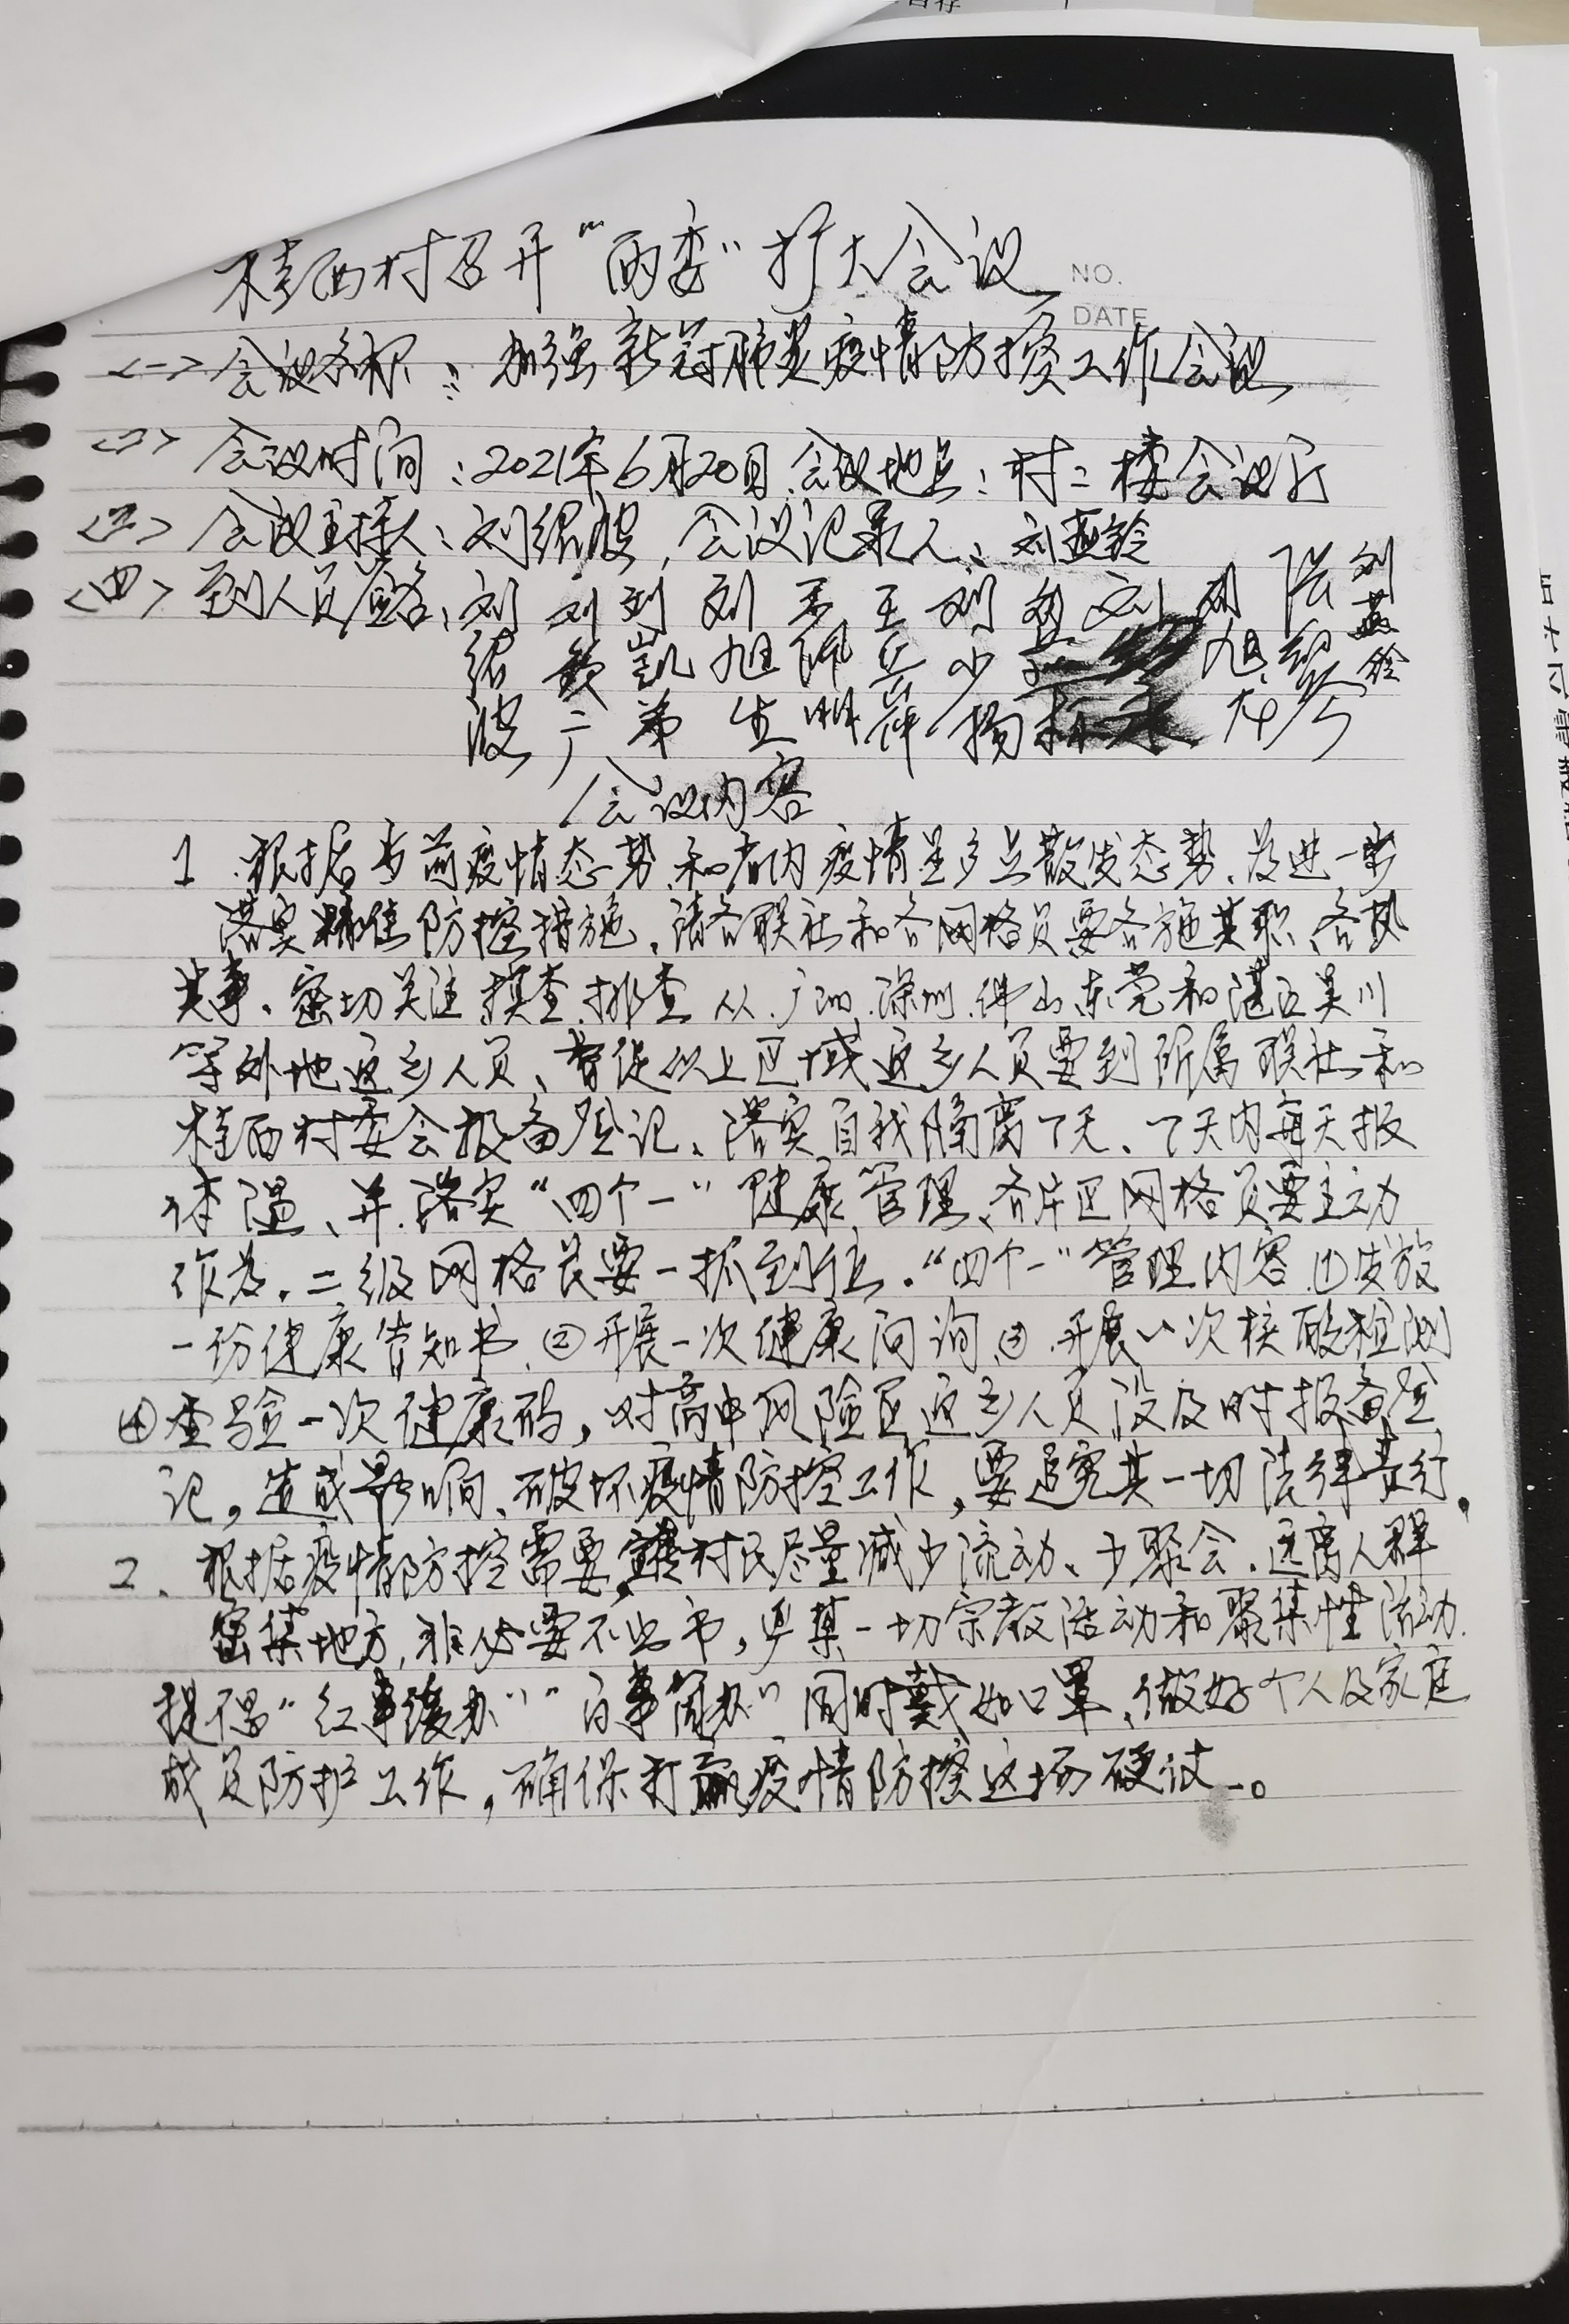 桂西村召开“两委”扩大会议
NO.
DATE
<一> 会议名称：加强新冠肺炎疫情防控工作会议
<二> 会议时间：2021年6月20日.会议地点：村二楼会议厅
<三> 会议主持人：刘绍波，会议记录人：刘燕铃
<四> 到人员签名、刘绍波 刘 刘凯弟 刘旭生 王 明 王岳祥 刘少扬 刘 旭 陈绍 刘燕铃
会议内容
1.根据当前疫情态势、和省内疫情呈多点散发态势、及进一步
落实精准防控措施、请各联社和各网格员要各施其职、各执
其事、密切关注、摸查、排查、从广州、深圳、佛山东莞和湛江吴川
等外地返乡人员、督促以上区域返乡人员要到所属联社和
桂西村委会报备登记、落实自我隔离7天、7天内每天报
体温、并落实“四个一”健康管理、各片区网格员要主动
作为.二级网格长要一抓到位.“四个一”管理内容①发放
一份健康告知书、②开展一次健康问询、③开展一次核酸检测
④查验一次健康码，对高中风险区返乡人员没及时报备登
记，造成影响、破坏疫情防控工作，要追究其一切法律责任.
2、根据疫情防控需要,村民尽量减少流动、少聚会.远离人群
密集地方,非必要不出市，严禁一切宗教活动和聚集性活动.
提倡“红事缓办”“白事简办”同时戴好口罩、做好个人及家庭
成员防护工作，确保打赢疫情防控这场硬仗。